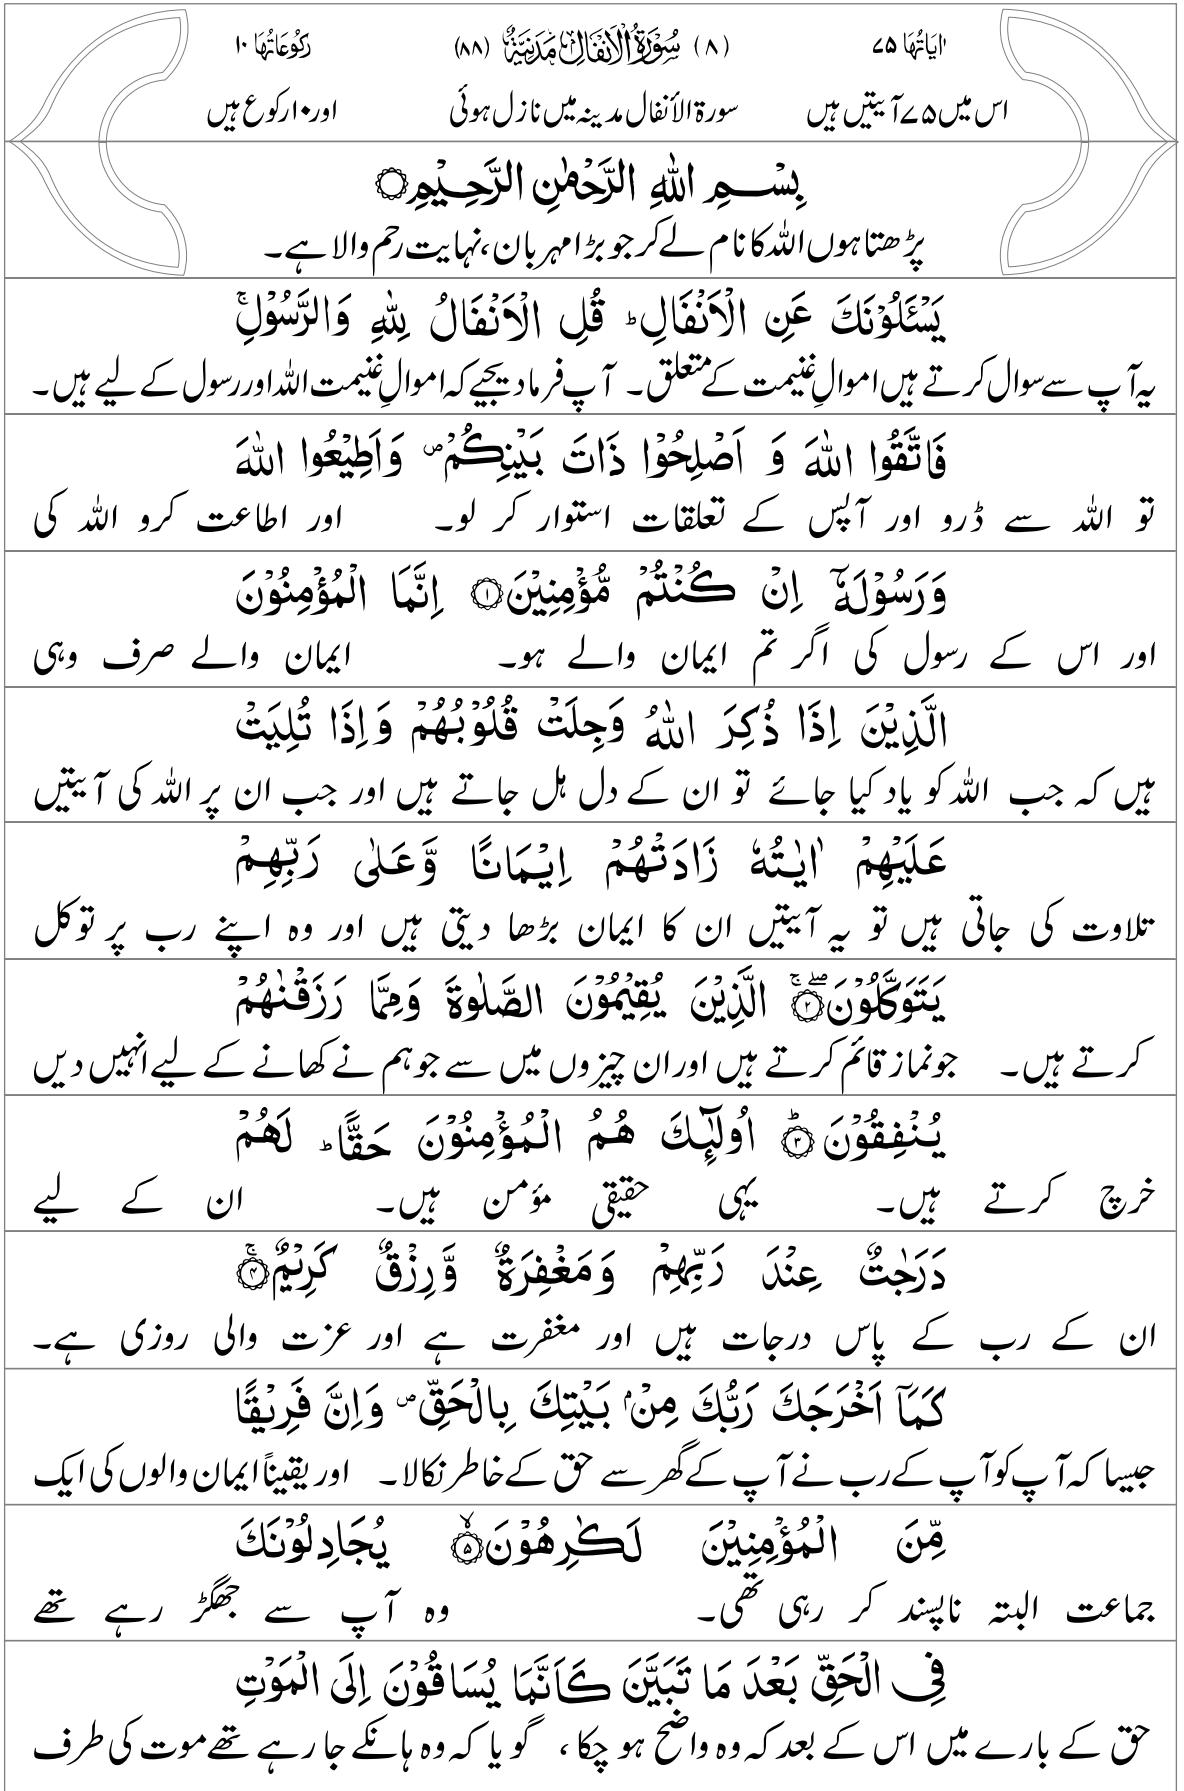 اٰیَاتُهَا ۷۵ (۸) سُوْرَةُ الْاَنْفَالِ مَدَنِیَّةٌ (۸۸) رُكُوْعَاتُهَا ۱۰
اس میں ۷۵ آیتیں ہیں سورۃ الأنفال مدینہ میں نازل ہوئی اور ۱۰ رکوع ہیں
بِسْــمِ اللّٰهِ الرَّحْمٰنِ الرَّحِیْمِ۝
پڑھتا ہوں اللہ کا نام لے کر جو بڑا مہربان، نہایت رحم والا ہے۔
یَسْـَٔلُوْنَكَ عَنِ الْاَنْفَالِؕ قُلِ الْاَنْفَالُ لِلّٰهِ وَالرَّسُوْلِۚ
یہ آپ سے سوال کرتے ہیں اموالِ غنیمت کے متعلق۔ آپ فرما دیجیے کہ اموالِ غنیمت اللہ اور رسول کے لیے ہیں۔
فَاتَّقُوا اللّٰهَ وَ اَصْلِحُوْا ذَاتَ بَیْنِكُمْ۪ وَاَطِیْعُوا اللّٰهَ
تو اللہ سے ڈرو اور آپس کے تعلقات استوار کر لو۔ اور اطاعت کرو اللہ کی
وَرَسُوْلَهٗۤ اِنْ كُنْتُمْ مُّؤْمِنِیْنَ۝۱ اِنَّمَا الْمُؤْمِنُوْنَ
اور اس کے رسول کی اگر تم ایمان والے ہو۔ ایمان والے صرف وہی
الَّذِیْنَ اِذَا ذُكِرَ اللّٰهُ وَجِلَتْ قُلُوْبُهُمْ وَاِذَا تُلِیَتْ
ہیں کہ جب اللہ کو یاد کیا جائے تو ان کے دل ہل جاتے ہیں اور جب ان پر اللہ کی آیتیں
عَلَیْهِمْ اٰیٰتُهٗ زَادَتْهُمْ اِیْمَانًا وَّعَلٰی رَبِّهِمْ
تلاوت کی جاتی ہیں تو یہ آیتیں ان کا ایمان بڑھا دیتی ہیں اور وہ اپنے رب پر توکل
یَتَوَكَّلُوْنَ۝۲ۚۖ الَّذِیْنَ یُقِیْمُوْنَ الصَّلٰوةَ وَمِمَّا رَزَقْنٰهُمْ
کرتے ہیں۔ جو نماز قائم کرتے ہیں اور ان چیزوں میں سے جو ہم نے کھانے کے لیے انہیں دیں
یُنْفِقُوْنَ۝۳ؕ اُولٰٓئِكَ هُمُ الْمُؤْمِنُوْنَ حَقًّاؕ لَهُمْ
خرچ کرتے ہیں۔ یہی حقیقی مؤمن ہیں۔ ان کے لیے
دَرَجٰتٌ عِنْدَ رَبِّهِمْ وَمَغْفِرَةٌ وَّرِزْقٌ كَرِیْمٌ۝۴ۚ
ان کے رب کے پاس درجات ہیں اور مغفرت ہے اور عزت والی روزی ہے۔
كَمَاۤ اَخْرَجَكَ رَبُّكَ مِنْۢ بَیْتِكَ بِالْحَقِّ۪ وَاِنَّ فَرِیْقًا
جیسا کہ آپ کو آپ کے رب نے آپ کے گھر سے حق کے خاطر نکالا۔ اور یقیناً ایمان والوں کی ایک
مِّنَ الْمُؤْمِنِیْنَ لَكٰرِهُوْنَ۝۵ۙ یُجَادِلُوْنَكَ
جماعت البتہ ناپسند کر رہی تھی۔ وہ آپ سے جھگڑ رہے تھے
فِی الْحَقِّ بَعْدَ مَا تَبَیَّنَ كَاَنَّمَا یُسَاقُوْنَ اِلَی الْمَوْتِ
حق کے بارے میں اس کے بعد کہ وہ واضح ہو چکا، گویا کہ وہ ہانکے جا رہے تھے موت کی طرف